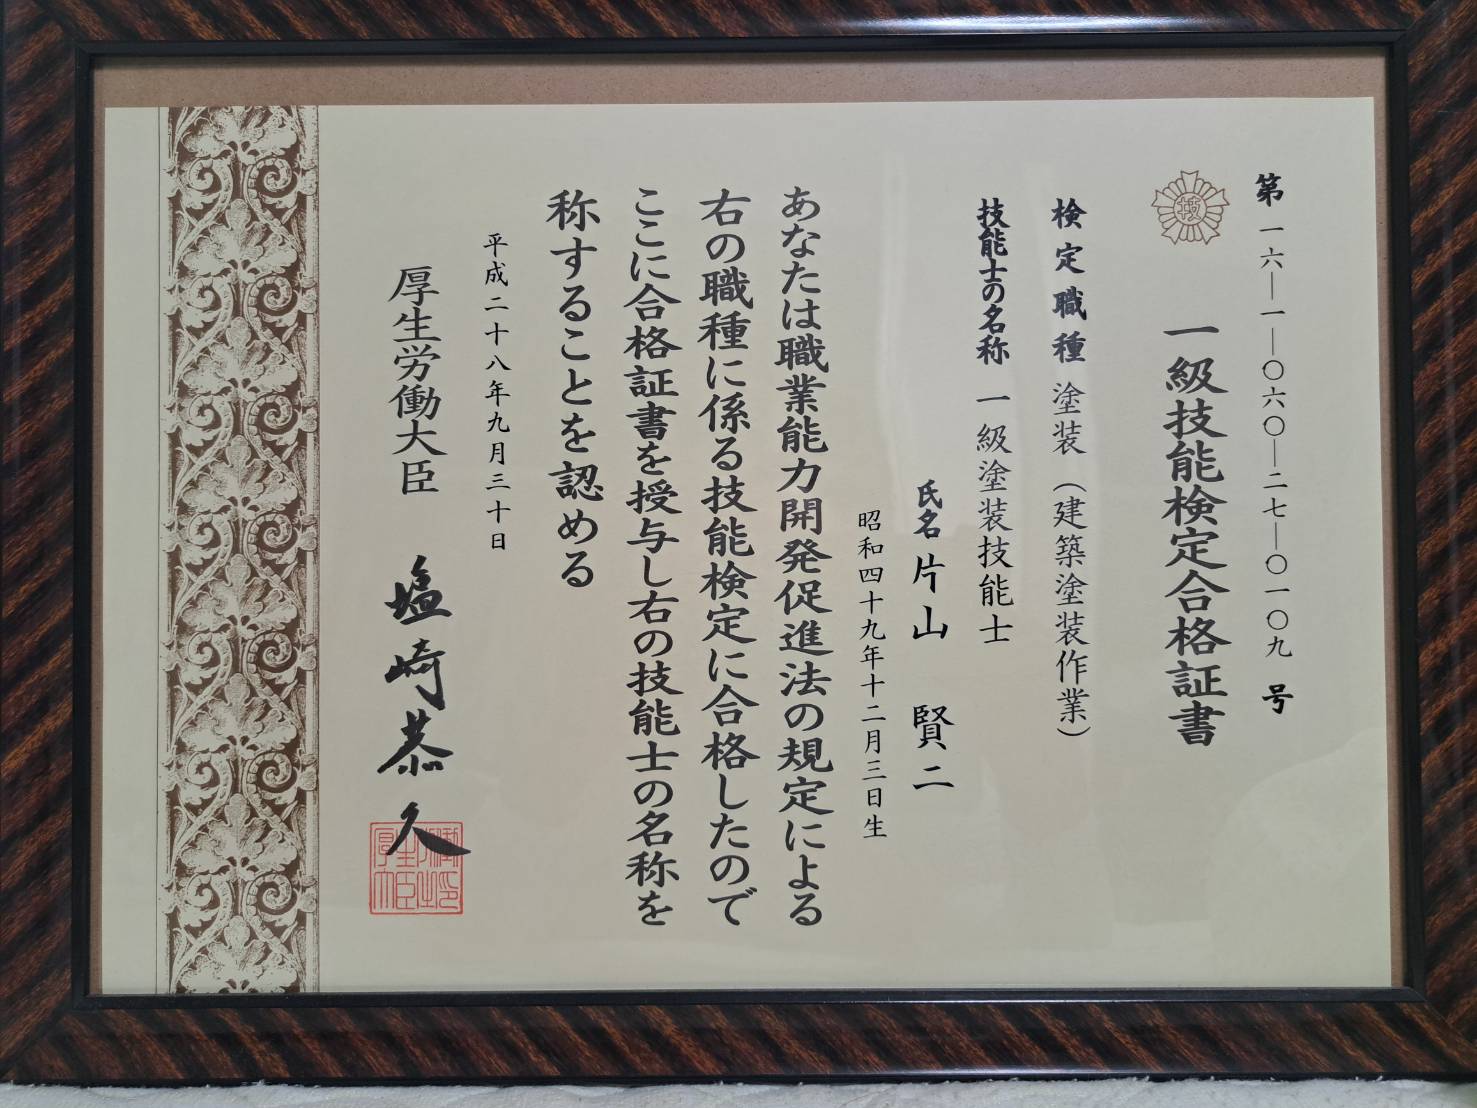 第一六―一―〇六〇―二七―〇一〇九号
技
一級技能検定合格証書
検定職種 塗装（建築塗装作業）
技能士の名称 一級塗装技能士
氏名 片山 賢二
昭和四十九年十二月三日生
あなたは職業能力開発促進法の規定による
右の職種に係る技能検定に合格したので
ここに合格証書を授与し右の技能士の名称を
称することを認める
平成二十八年九月三十日
厚生労働大臣 塩崎恭久